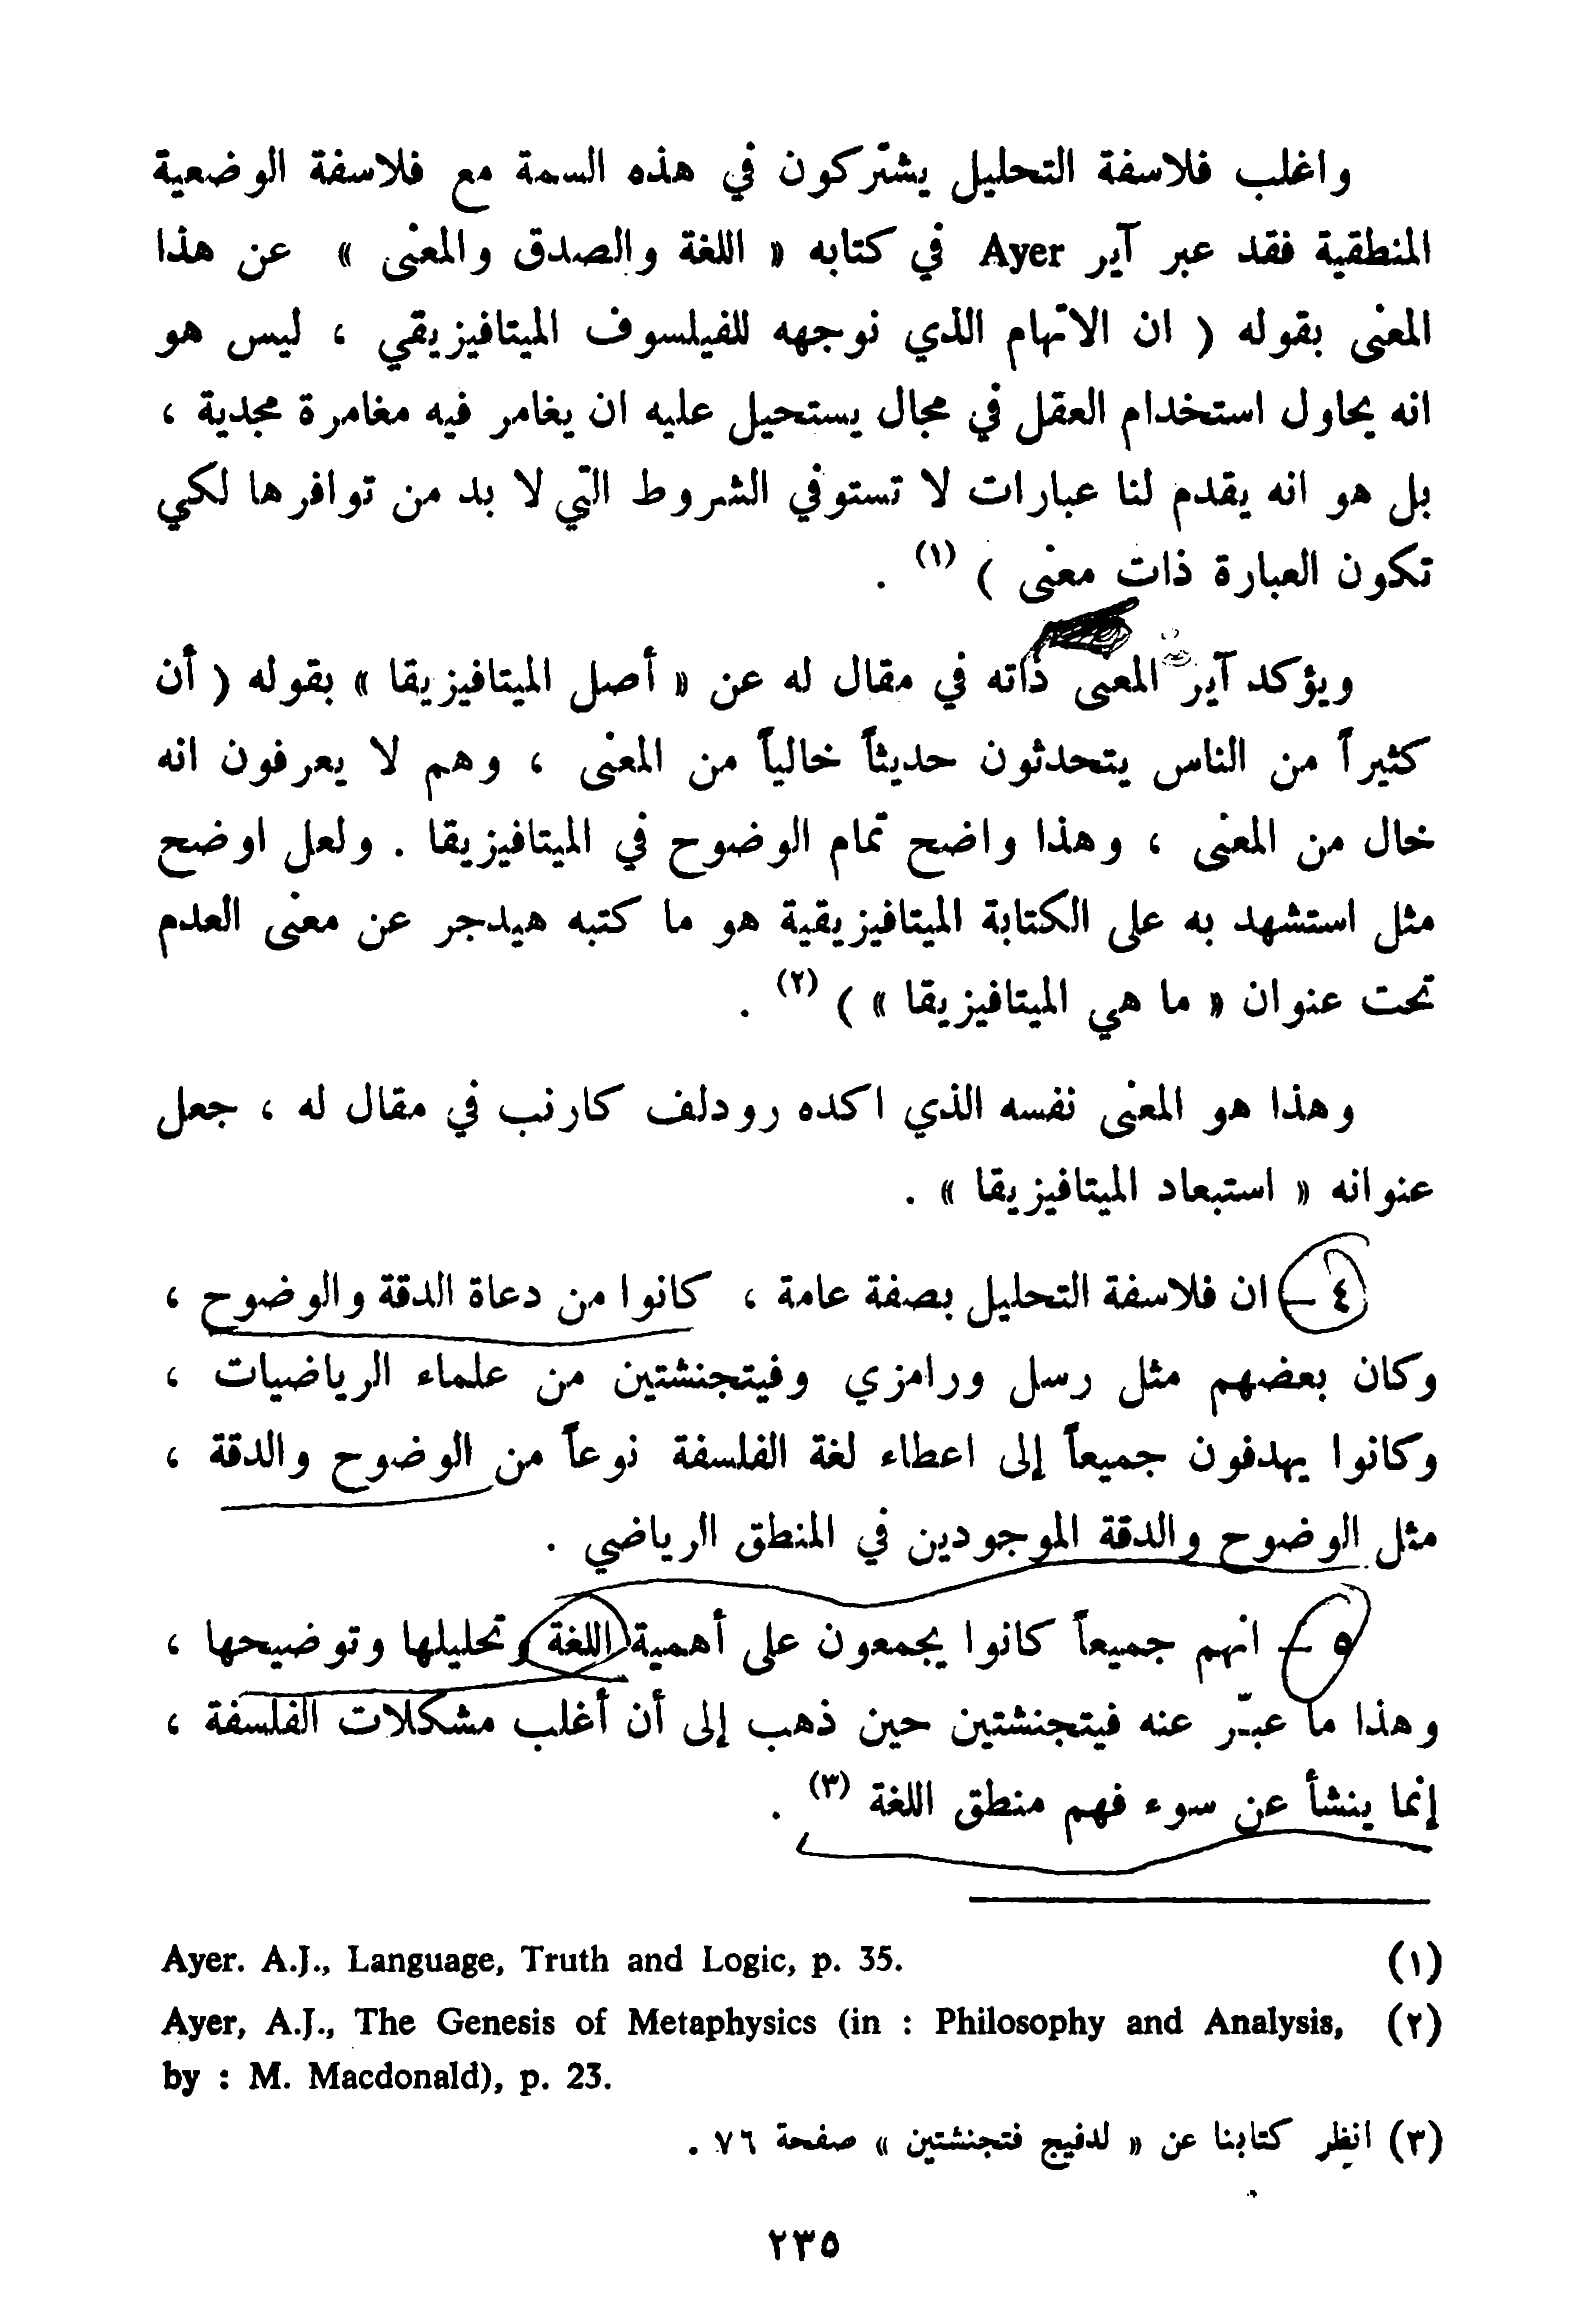 واغلب فلاسفة التحليل يشتركون في هذه السمة مع فلاسفة الوضعية
المنطقية فقد عبر آير Ayer في كتابه « اللغة والصدق والمعنى » عن هذا
المعنى بقوله ( ان الاتهام الذي نوجهه للفيلسوف الميتافيزيقي ، ليس هو
انه يحاول استخدام العقل في مجال يستحيل عليه ان يغامر فيه مغامرة مجدية ،
بل هو انه يقدم لنا عبارات لا تستوفي الشروط التي لا بد من توافرها لكي
تكون العبارة ذات معنى ) (١) .
ويؤكد آير المعنى ذاته في مقال له عن « أصل الميتافيزيقا » بقوله ( أن
كثيراً من الناس يتحدثون حديثاً خالياً من المعنى ، وهم لا يعرفون انه
خال من المعنى ، وهذا واضح تمام الوضوح في الميتافيزيقا . ولعل اوضح
مثل استشهد به على الكتابة الميتافيزيقية هو ما كتبه هيدجر عن معنى العدم
تحت عنوان « ما هي الميتافيزيقا » ) (٢) .
وهذا هو المعنى نفسه الذي اكده رودلف كارنب في مقال له ، جعل
عنوانه « استبعاد الميتافيزيقا » .
٤ – ان فلاسفة التحليل بصفة عامة ، كانوا من دعاة الدقة والوضوح ،
وكان بعضهم مثل رسل ورامزي وفيتجنشتين من علماء الرياضيات ،
وكانوا يهدفون جميعاً إلى اعطاء لغة الفلسفة نوعاً من الوضوح والدقة ،
مثل الوضوح والدقة الموجودين في المنطق الرياضي .
٥ – انهم جميعاً كانوا يجمعون على أهمية اللغة وتحليلها وتوضيحها ،
وهذا ما عبّر عنه فيتجنشتين حين ذهب إلى أن أغلب مشكلات الفلسفة ،
إنما ينشأ عن سوء فهم منطق اللغة (٣) .
(١) Ayer. A.J., Language, Truth and Logic, p. 35.
(٢) Ayer, A.J., The Genesis of Metaphysics (in : Philosophy and Analysis,
by : M. Macdonald), p. 23.
(٣) انظر كتابنا عن « لدفيج فتجنشتين » صفحة ٧٦ .
٢٣٥